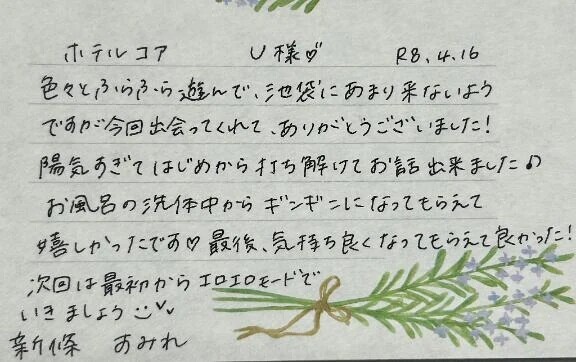 ホテルコア U様♡ R8.4.16
色々とふらふら遊んで、池袋にあまり来ないよう
ですが今回出会ってくれて、ありがとうございました!
陽気すぎてはじめから打ち解けてお話出来ました♪
お風呂の洗体中からギンギンになってもらえて
嬉しかったです♡最後、気持ち良くなってもらえて良かった!
次回は最初からエロエロモードで
いきましょう
新條 すみれ